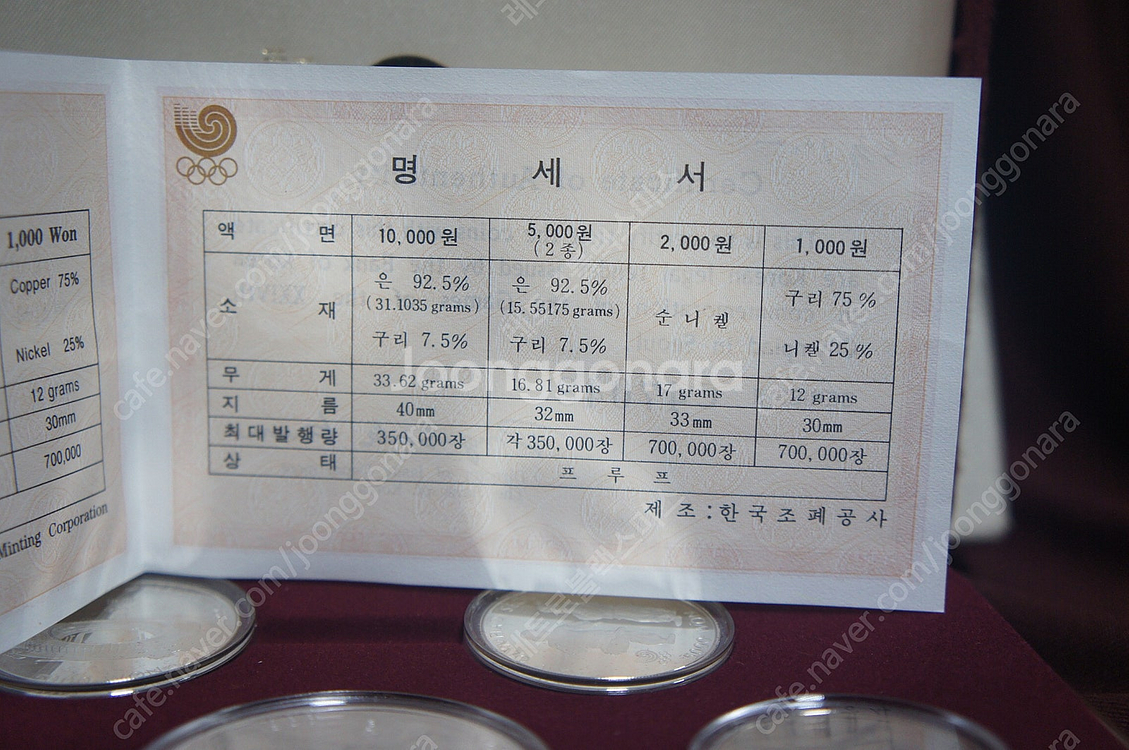 1,000 Won
Copper 75%
Nickel 25%
12 grams
30mm
700,000
Minting Corporation
명 세 서
액 면 10,000원 5,000원 (2종) 2,000원 1,000원
소 재
은 92.5% 은 92.5% 구리 75%
(31.1035 grams) (15.55175 grams) 순 니 켈
구리 7.5% 구리 7.5% 니켈 25%
무 게 33.62 grams 16.81 grams 17 grams 12 grams
지 름 40mm 32mm 33mm 30mm
최대발행량 350,000장 각 350,000장 700,000장 700,000장
상 태 프 루 프
제 조 : 한국조폐공사
joonggonara
cafe.naver.com/joonggonara
cafe.naver.com/joonggonara
cafe.naver.com/joonggonara